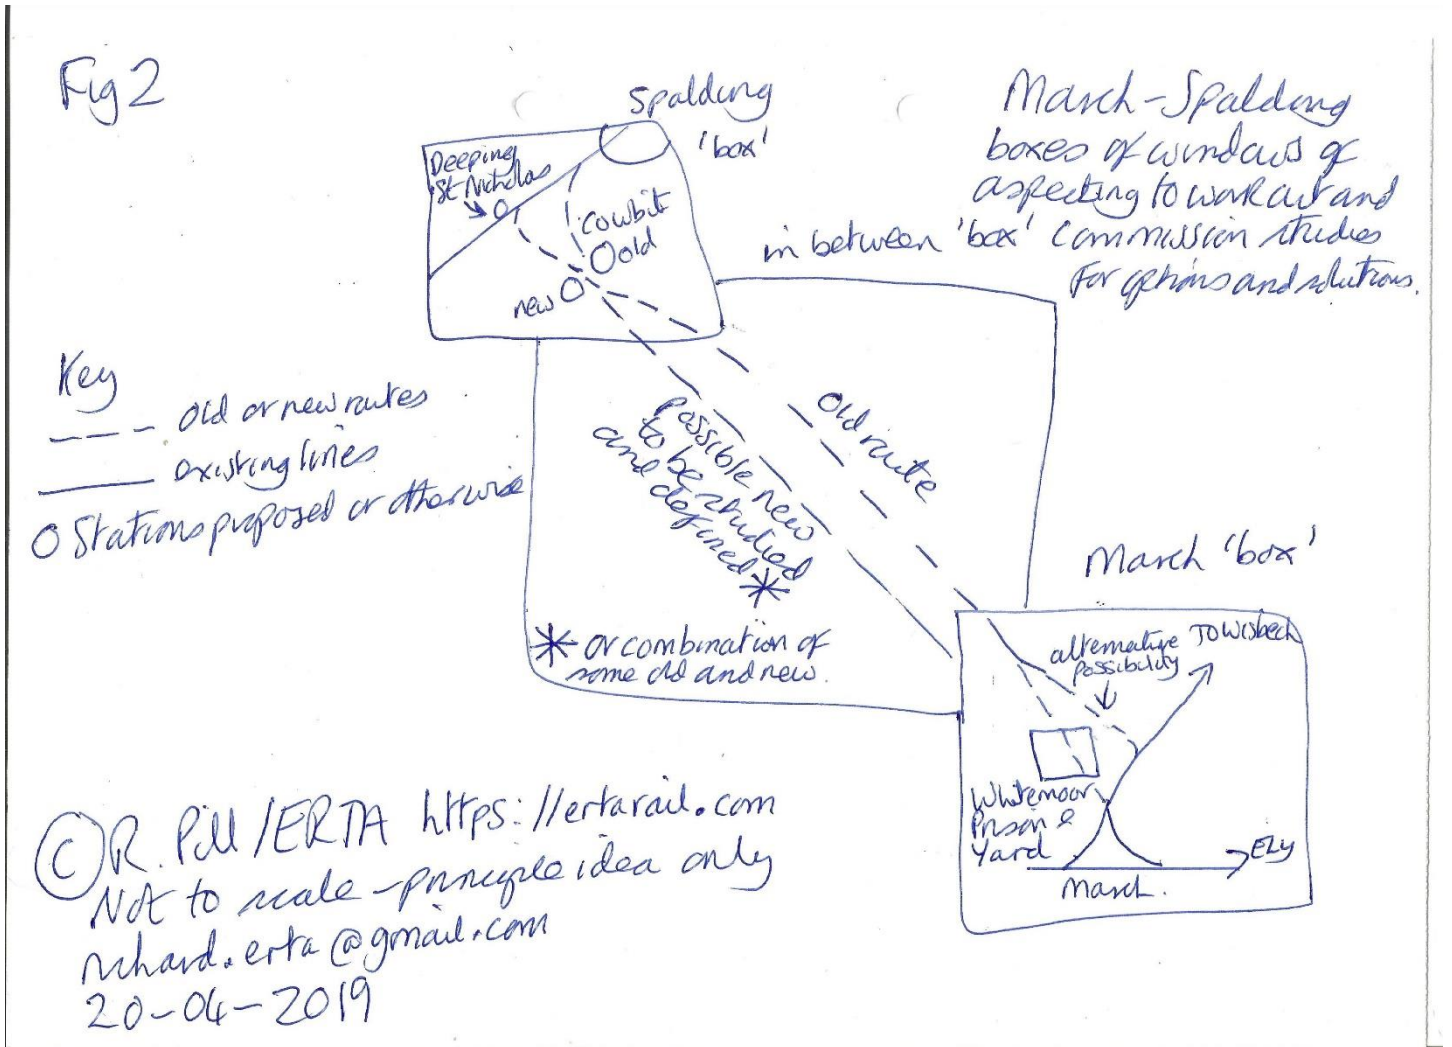 Fig 2
Spalding
'box'
March-Spalding
boxes of windows of
aspecting to work out and
in between 'box' Commission studies
for options and solutions.
Deeping
St Nicholas
Cowbit
old
new
Key
old or new routes
existing lines
O Stations proposed or otherwise
old route
possible new
to be studied
and defined *
* or combination of
some old and new.
March 'box'
alternative
possibility
To Wisbech
Whitemoor
Prison &
Yard
Ely
March.
© R. Pill / ERTA https://ertarail.com
Not to scale - principle idea only
richard.erta@gmail.com
20-04-2019